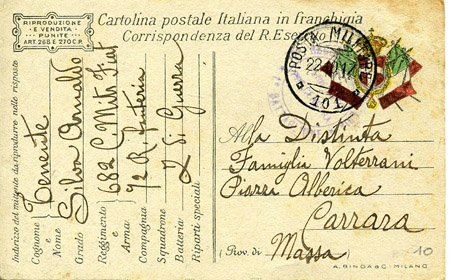 RIPRODUZIONE
E VENDITA
PUNITE
ART. 268 E 270 C.P.
Cartolina postale Italiana in franchigia
Corrispondenza del R. Esercito
POSTA MILITARE
22
101
Alla Distinta
Famiglia Volterrani
Piazza Alberica
Carrara
(Prov. di Massa
A. RINDA & C - MILANO
10
Indirizzo del mittente da riprodurre nelle risposte
Cognome
e
Nome
Grado
Tenente
Silva Arnaldo
Reggimento
e
Arma
682 C. Mitr. Fiat
Compagnia
92 R. Fanteria
Squadrone
Batteria
Z. di Guerra
Riparti speciali